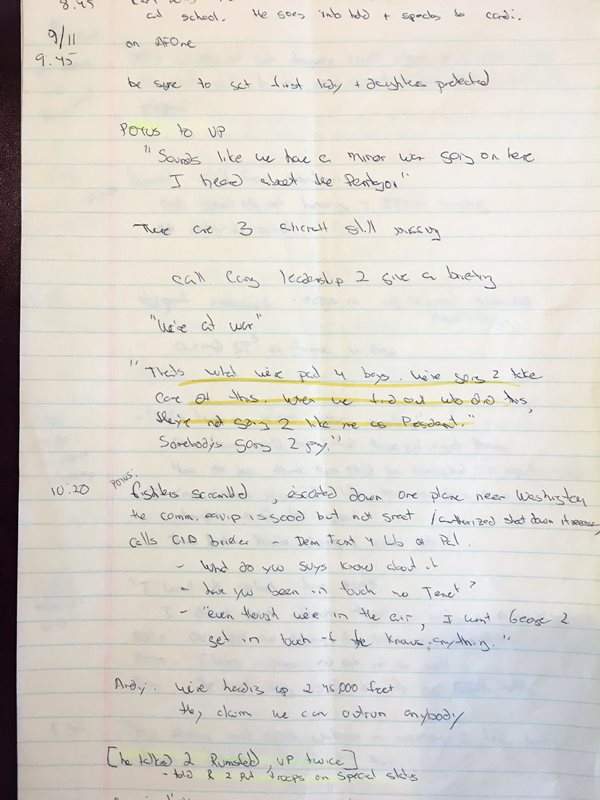 8.45
at school. He goes into hold + speaks to Condi.
9/11
9.45
on AFOne
be sure to get first lady + daughters protected
POTUS to VP
"Sounds like we have a minor war going on here
I heard about the Pentagon"
There are 3 aircraft still missing
call Cong leadership 2 give a briefing
"We're at war"
"Thats what we're paid 4 boys. We're going 2 take
care of this. When we find out who did this,
they're not going 2 like me as President."
Somebodys going 2 pay."
10:20
POTUS.
fighters scrambled, escorted down one plane near Washington
the comm. equip is good but not great / authorized shot down if necessary
calls CIA briefer - Dem Front 4 Lib of Pal.
- what do you guys know about it
- have you been in touch w Tenet?
- "even though we're in the air, I want George 2
get in touch if he knows anything."
Andy. We're heading up 2 45,000 feet
they claim we can outrun anybody
[he talked 2 Rumsfeld, VP twice]
- told R 2 put troops on special status